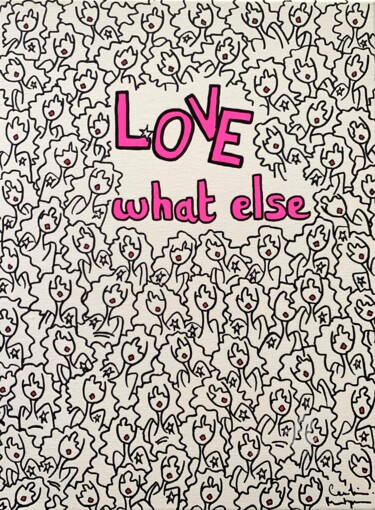 LOVE
what else